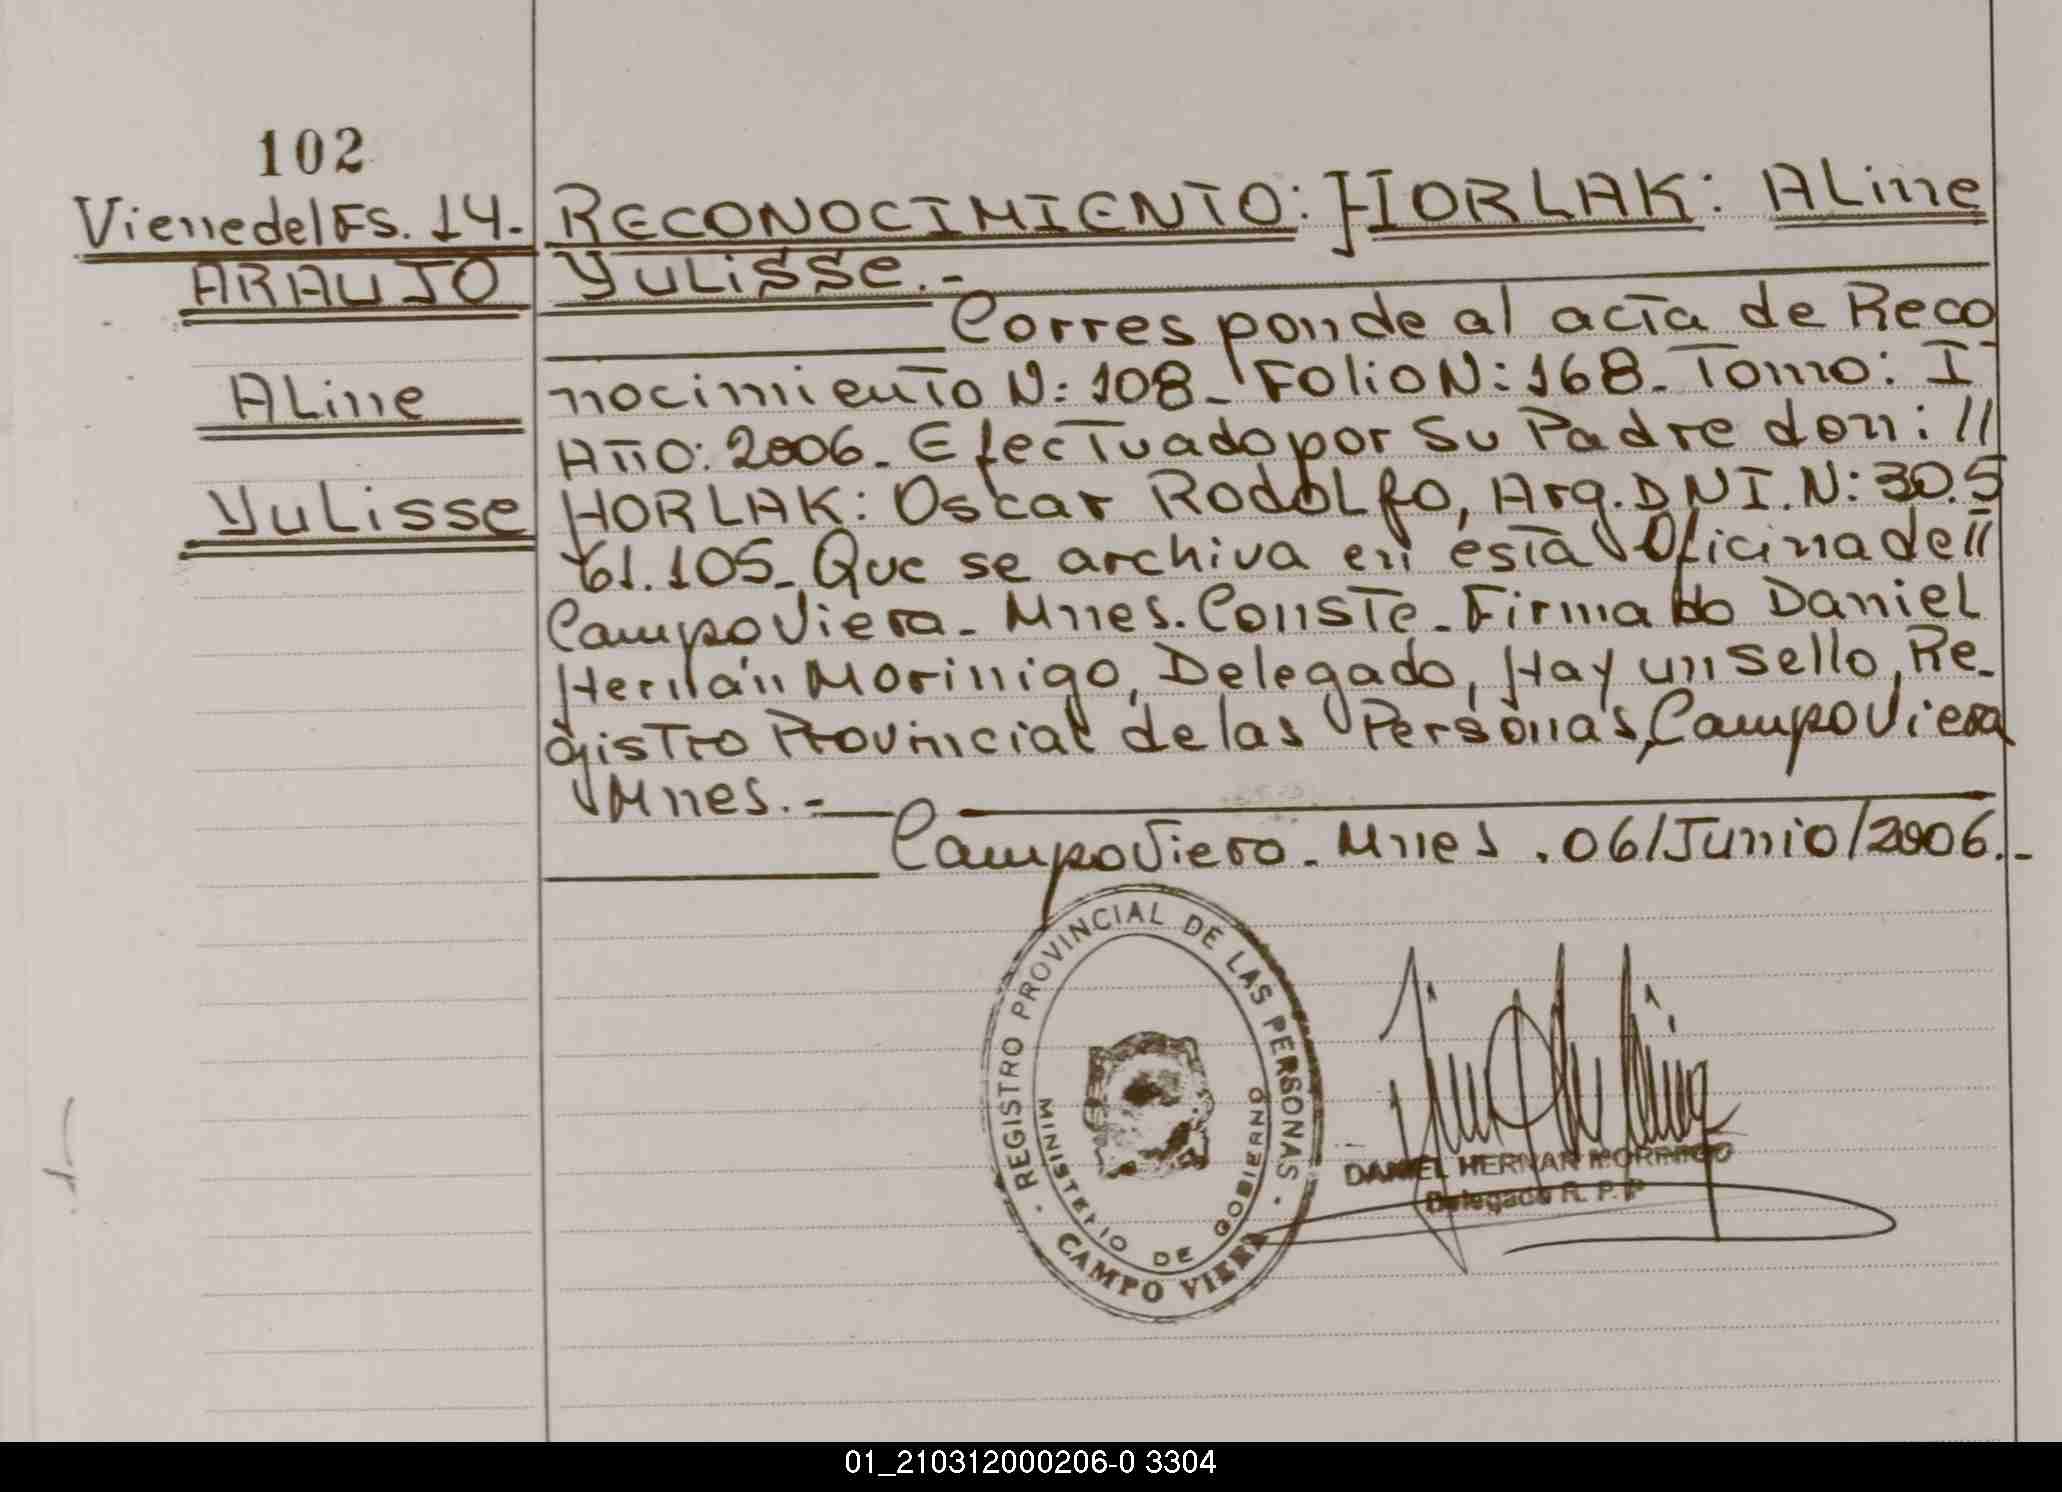 102
Viene del Fs. 14.-
ARAUJO
ALine
YuLisse
RECONOCIMIENTO: HORLAK: ALine
YuLisse.-
Corresponde al acta de Reco
nocimiento N: 108- Folio N: 168- Tomo: I
Año: 2006- Efectuado por Su Padre don: //
HORLAK: Oscar RodoLfo, Arg. DNI. N: 30.5
61.105- Que se archiva en esta Oficina de//
Campo Viera- Mnes. Conste- Firmado Daniel
Hernán Morinigo, Delegado, Hay un sello, Re-
gistro Provincial de las Personas, Campo Viera
Mnes.-
Campo Viera- Mnes, 06/Junio/2006.-
REGISTRO PROVINCIAL DE LAS PERSONAS
MINISTERIO DE GOBIERNO
CAMPO VIERA
DANIEL HERNAN MORINIGO
Delegado R. P. P
01_210312000206-0 3304